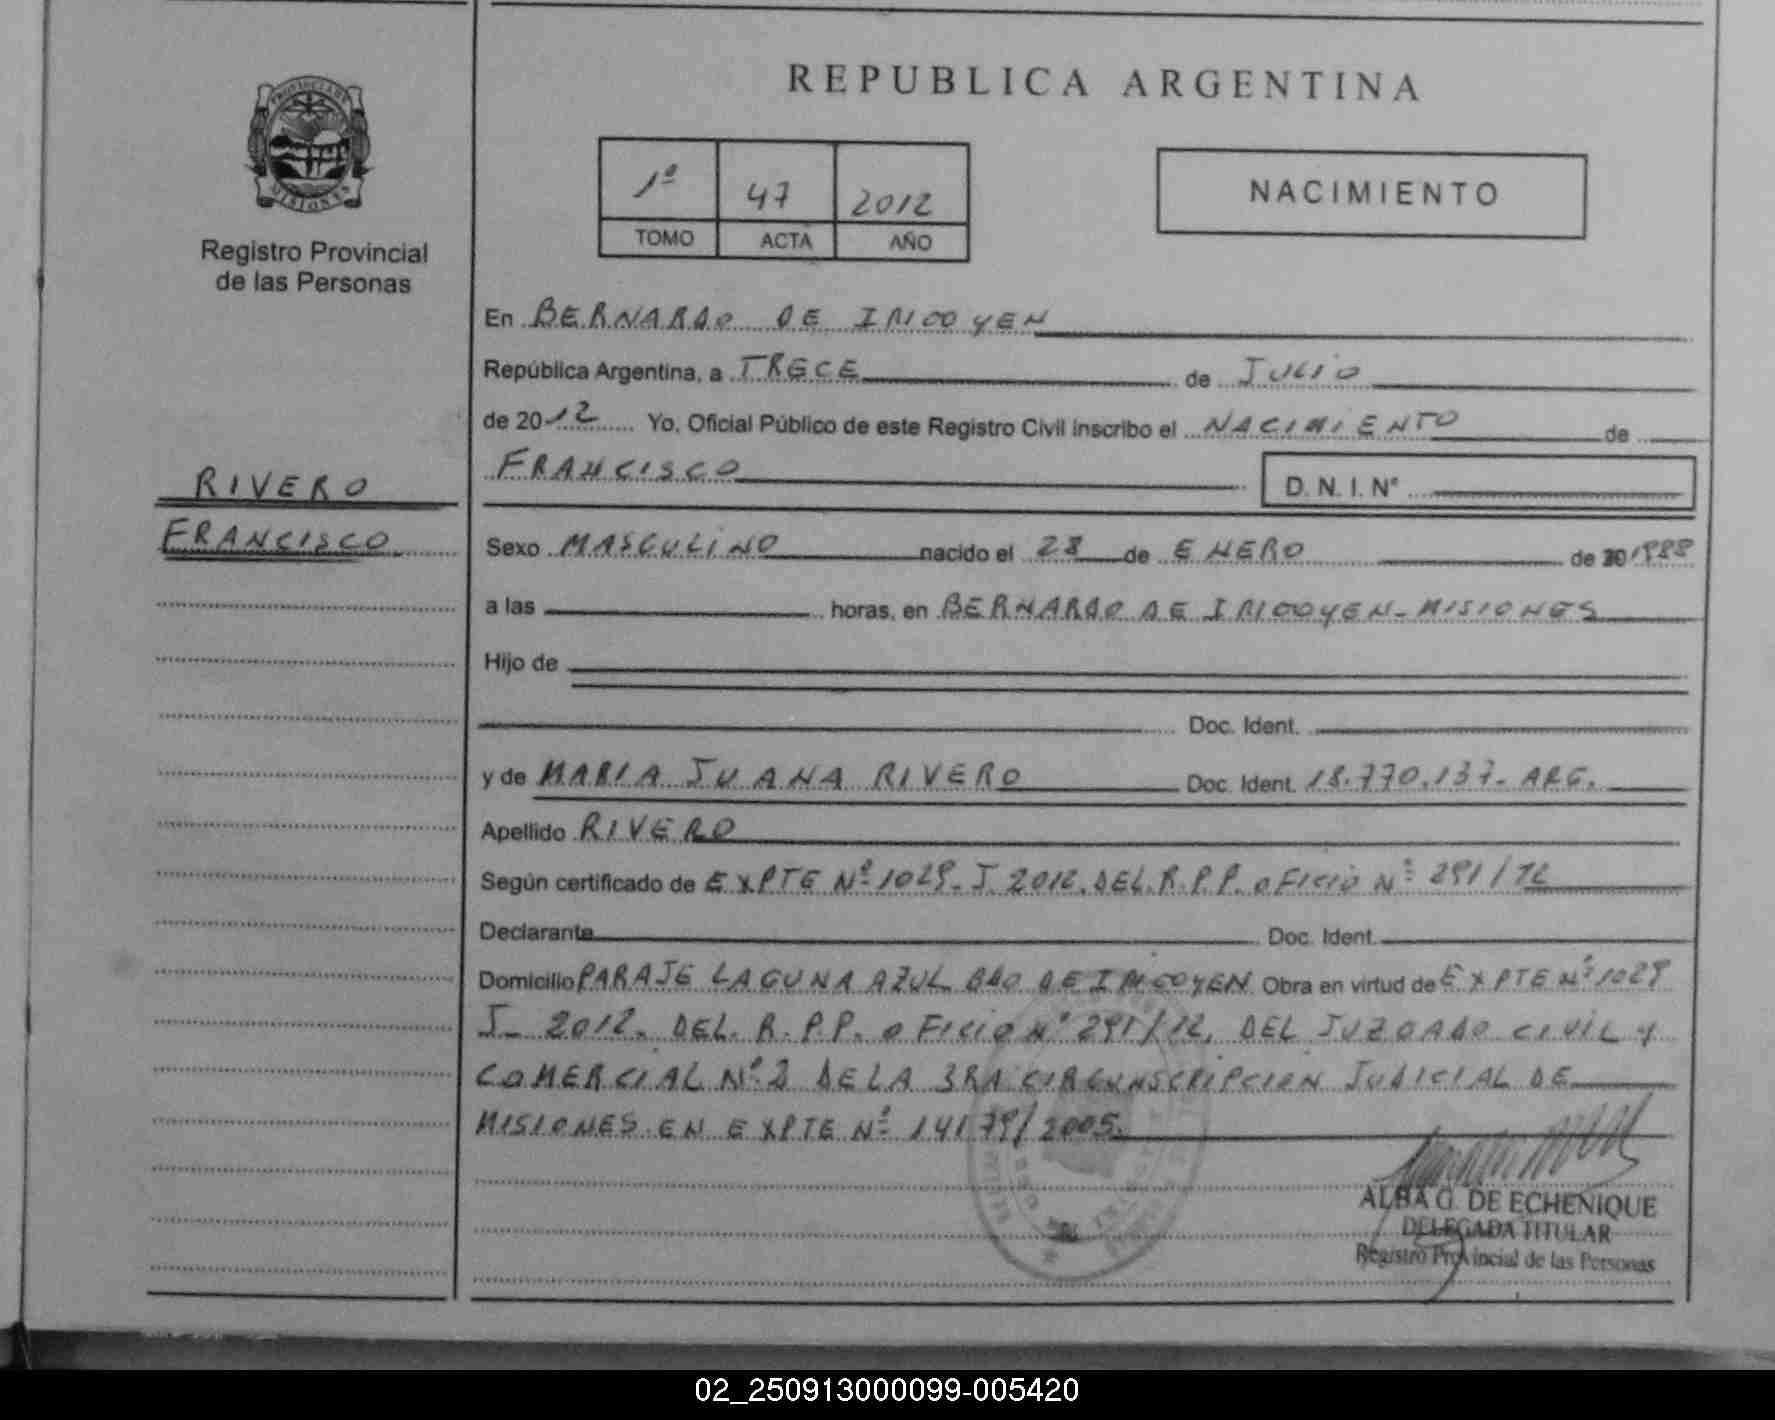 PROVINCIA DE
MISIONES
Registro Provincial
de las Personas
RIVERO
FRANCISCO
REPUBLICA ARGENTINA
1º 47 2012
TOMO ACTA AÑO
NACIMIENTO
En BERNARDO DE IRIGOYEN
República Argentina, a TRECE de JULIO
de 2012 Yo, Oficial Público de este Registro Civil inscribo el NACIMIENTO de
FRANCISCO D. N. I. Nº
Sexo MASCULINO nacido el 28 de ENERO de 20 1988
a las horas, en BERNARDO DE IRIGOYEN - MISIONES
Hijo de
Doc. Ident.
y de MARIA JUANA RIVERO Doc. Ident. 18.770.137- ARG.
Apellido RIVERO
Según certificado de EXPTE Nº 1029- J 2012. DEL. R. P. P. OFICIO Nº 291/12
Declarante Doc. Ident.
Domicilio PARAJE LAGUNA AZUL BDO DE IRIGOYEN Obra en virtud de EXPTE Nº 1029
J- 2012. DEL. R. P. P. OFICIO Nº 291/12, DEL JUZGADO CIVIL Y
COMERCIAL Nº 2 DE LA 3RA CIRCUNSCRIPCION JUDICIAL DE
MISIONES EN EXPTE Nº 14179/2005.
ALBA G. DE ECHENIQUE
DELEGADA TITULAR
Registro Provincial de las Personas
02_250913000099-005420